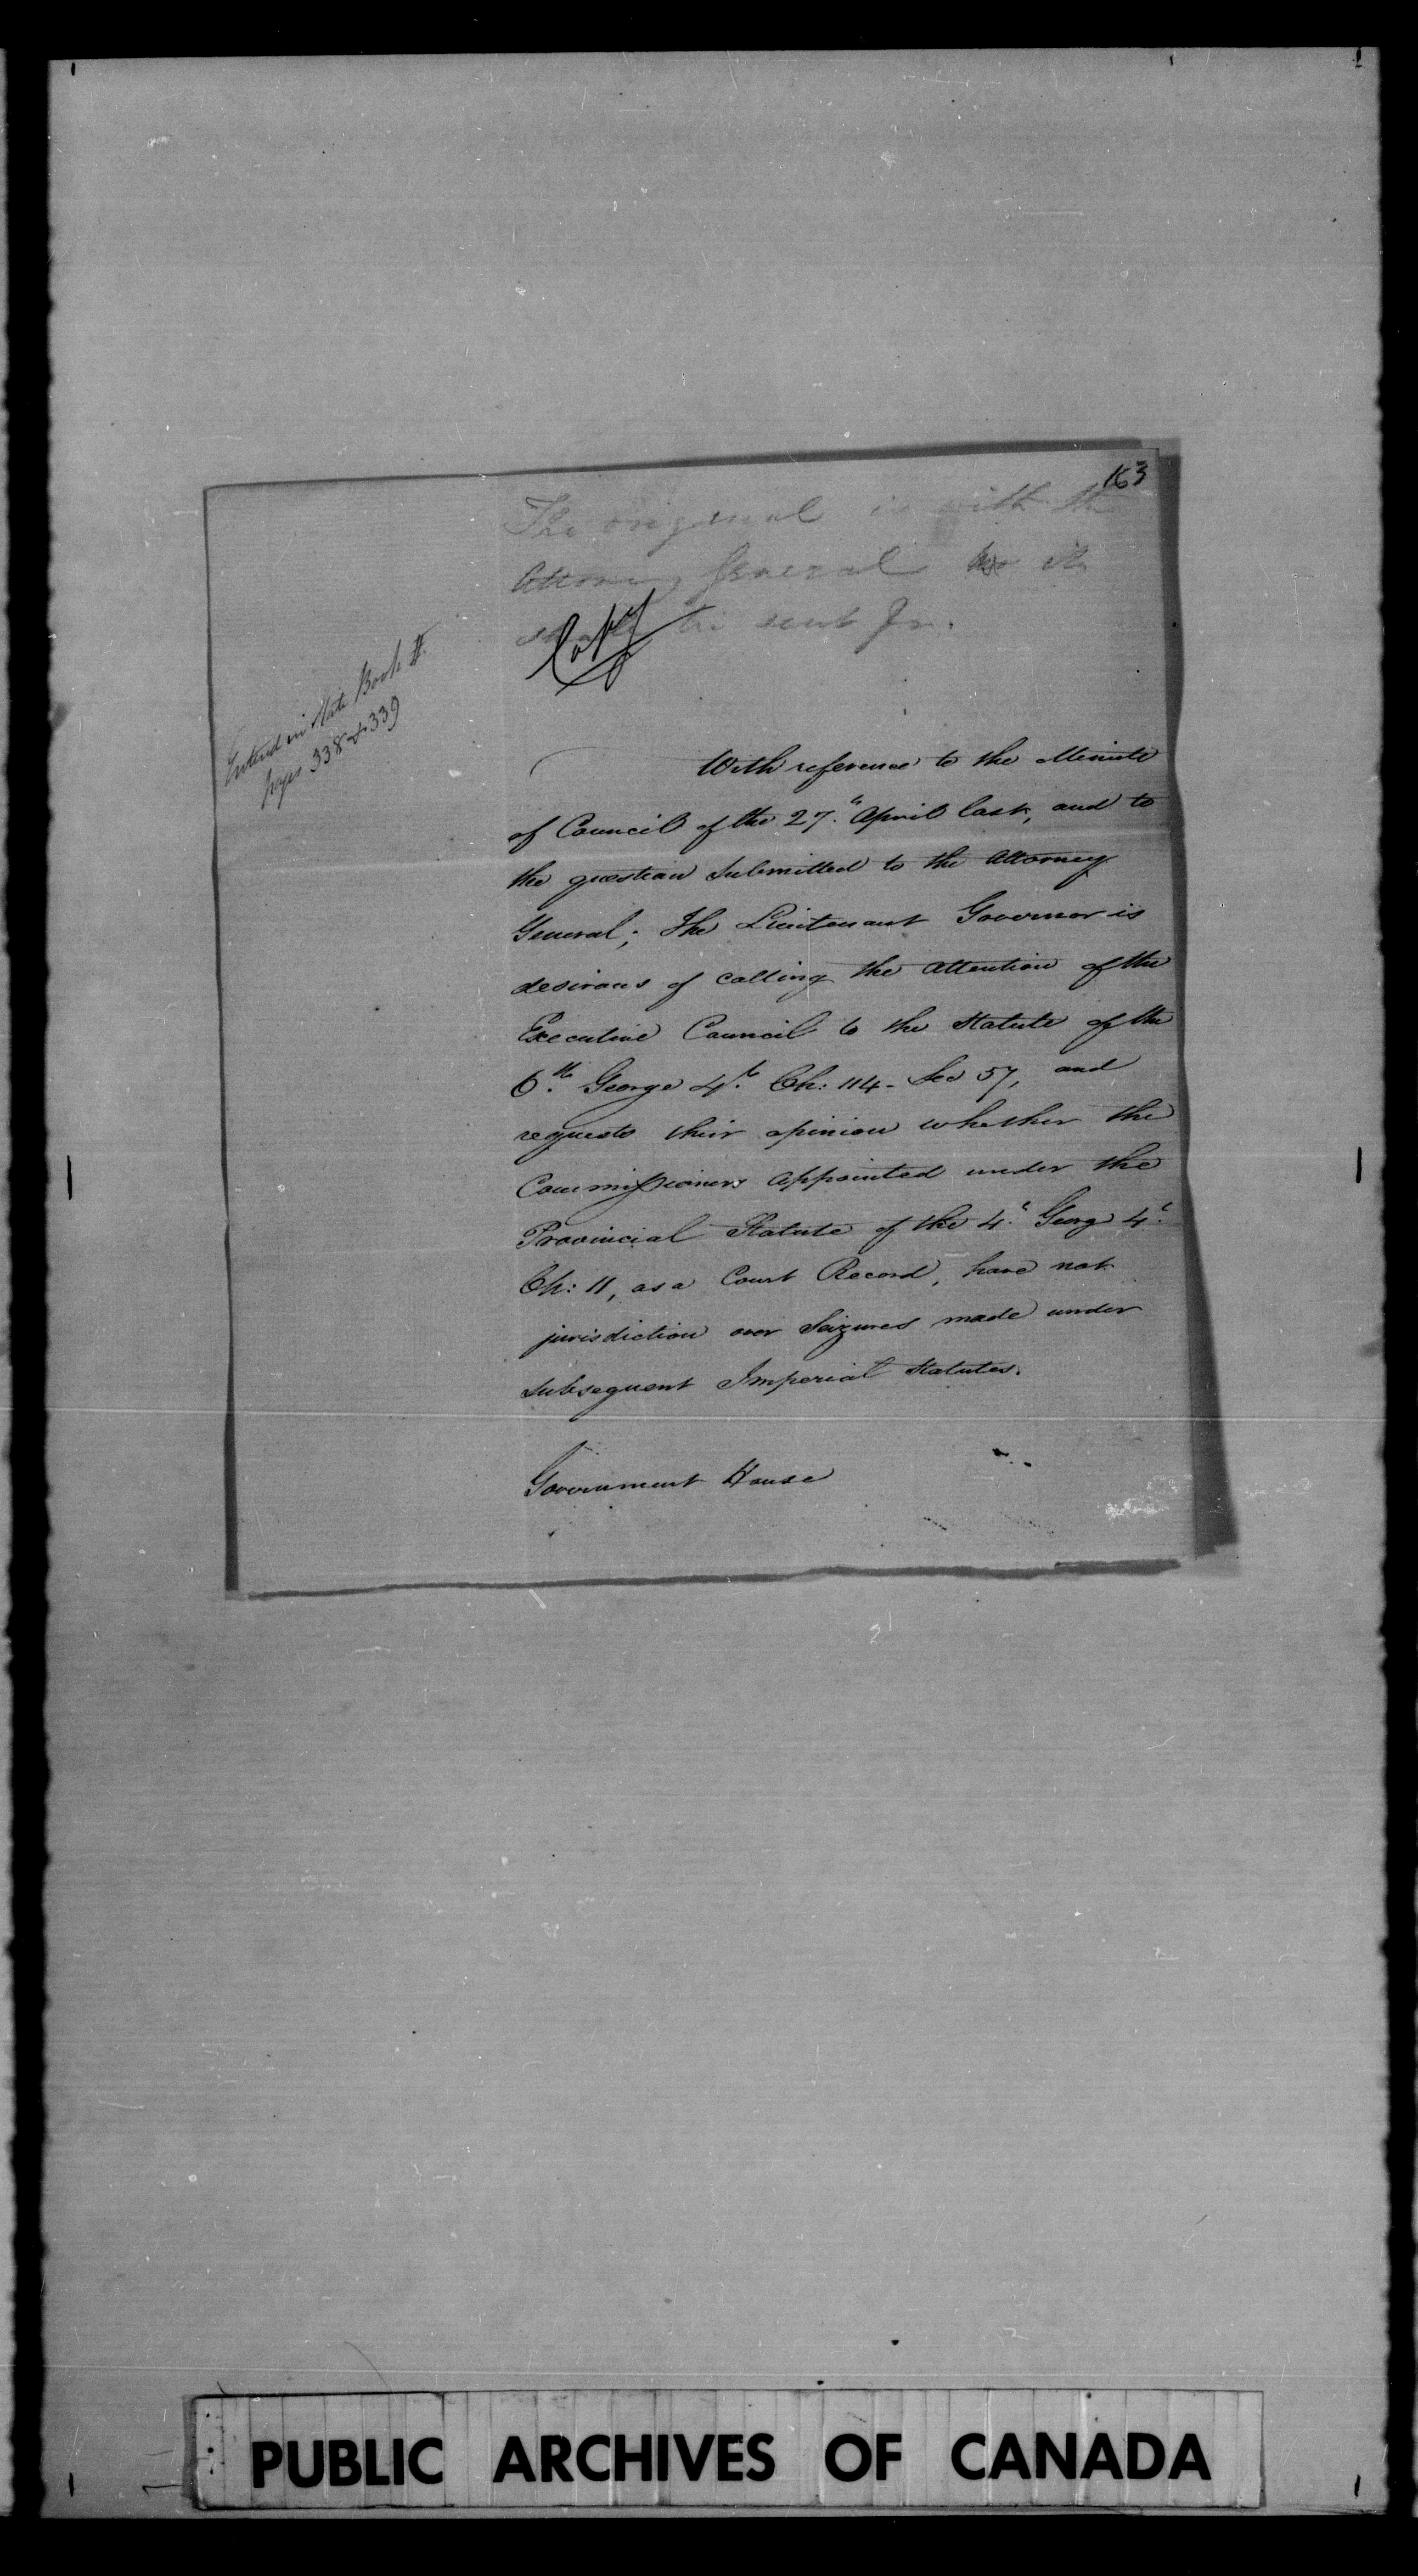 163
The original is with the
Attorney General
be sent for.
Copy
Entered in State Book
pages 338 & 339
With reference to the Minute
of Council of the 27.th April last, and to
the question submitted to the Attorney
General; The Lieutenant Governor is
desirous of calling the attention of the
Executive Council to the Statute of the
6.th George 4.th Ch: 114 - Sec 57, and
requests their opinion whether the
Commissioners appointed under the
Provincial Statute of the 4.th George 4.th
Ch: 11, as a Court Record, have not
jurisdiction over Seizures made under
subsequent Imperial Statutes.
Government House
PUBLIC ARCHIVES OF CANADA